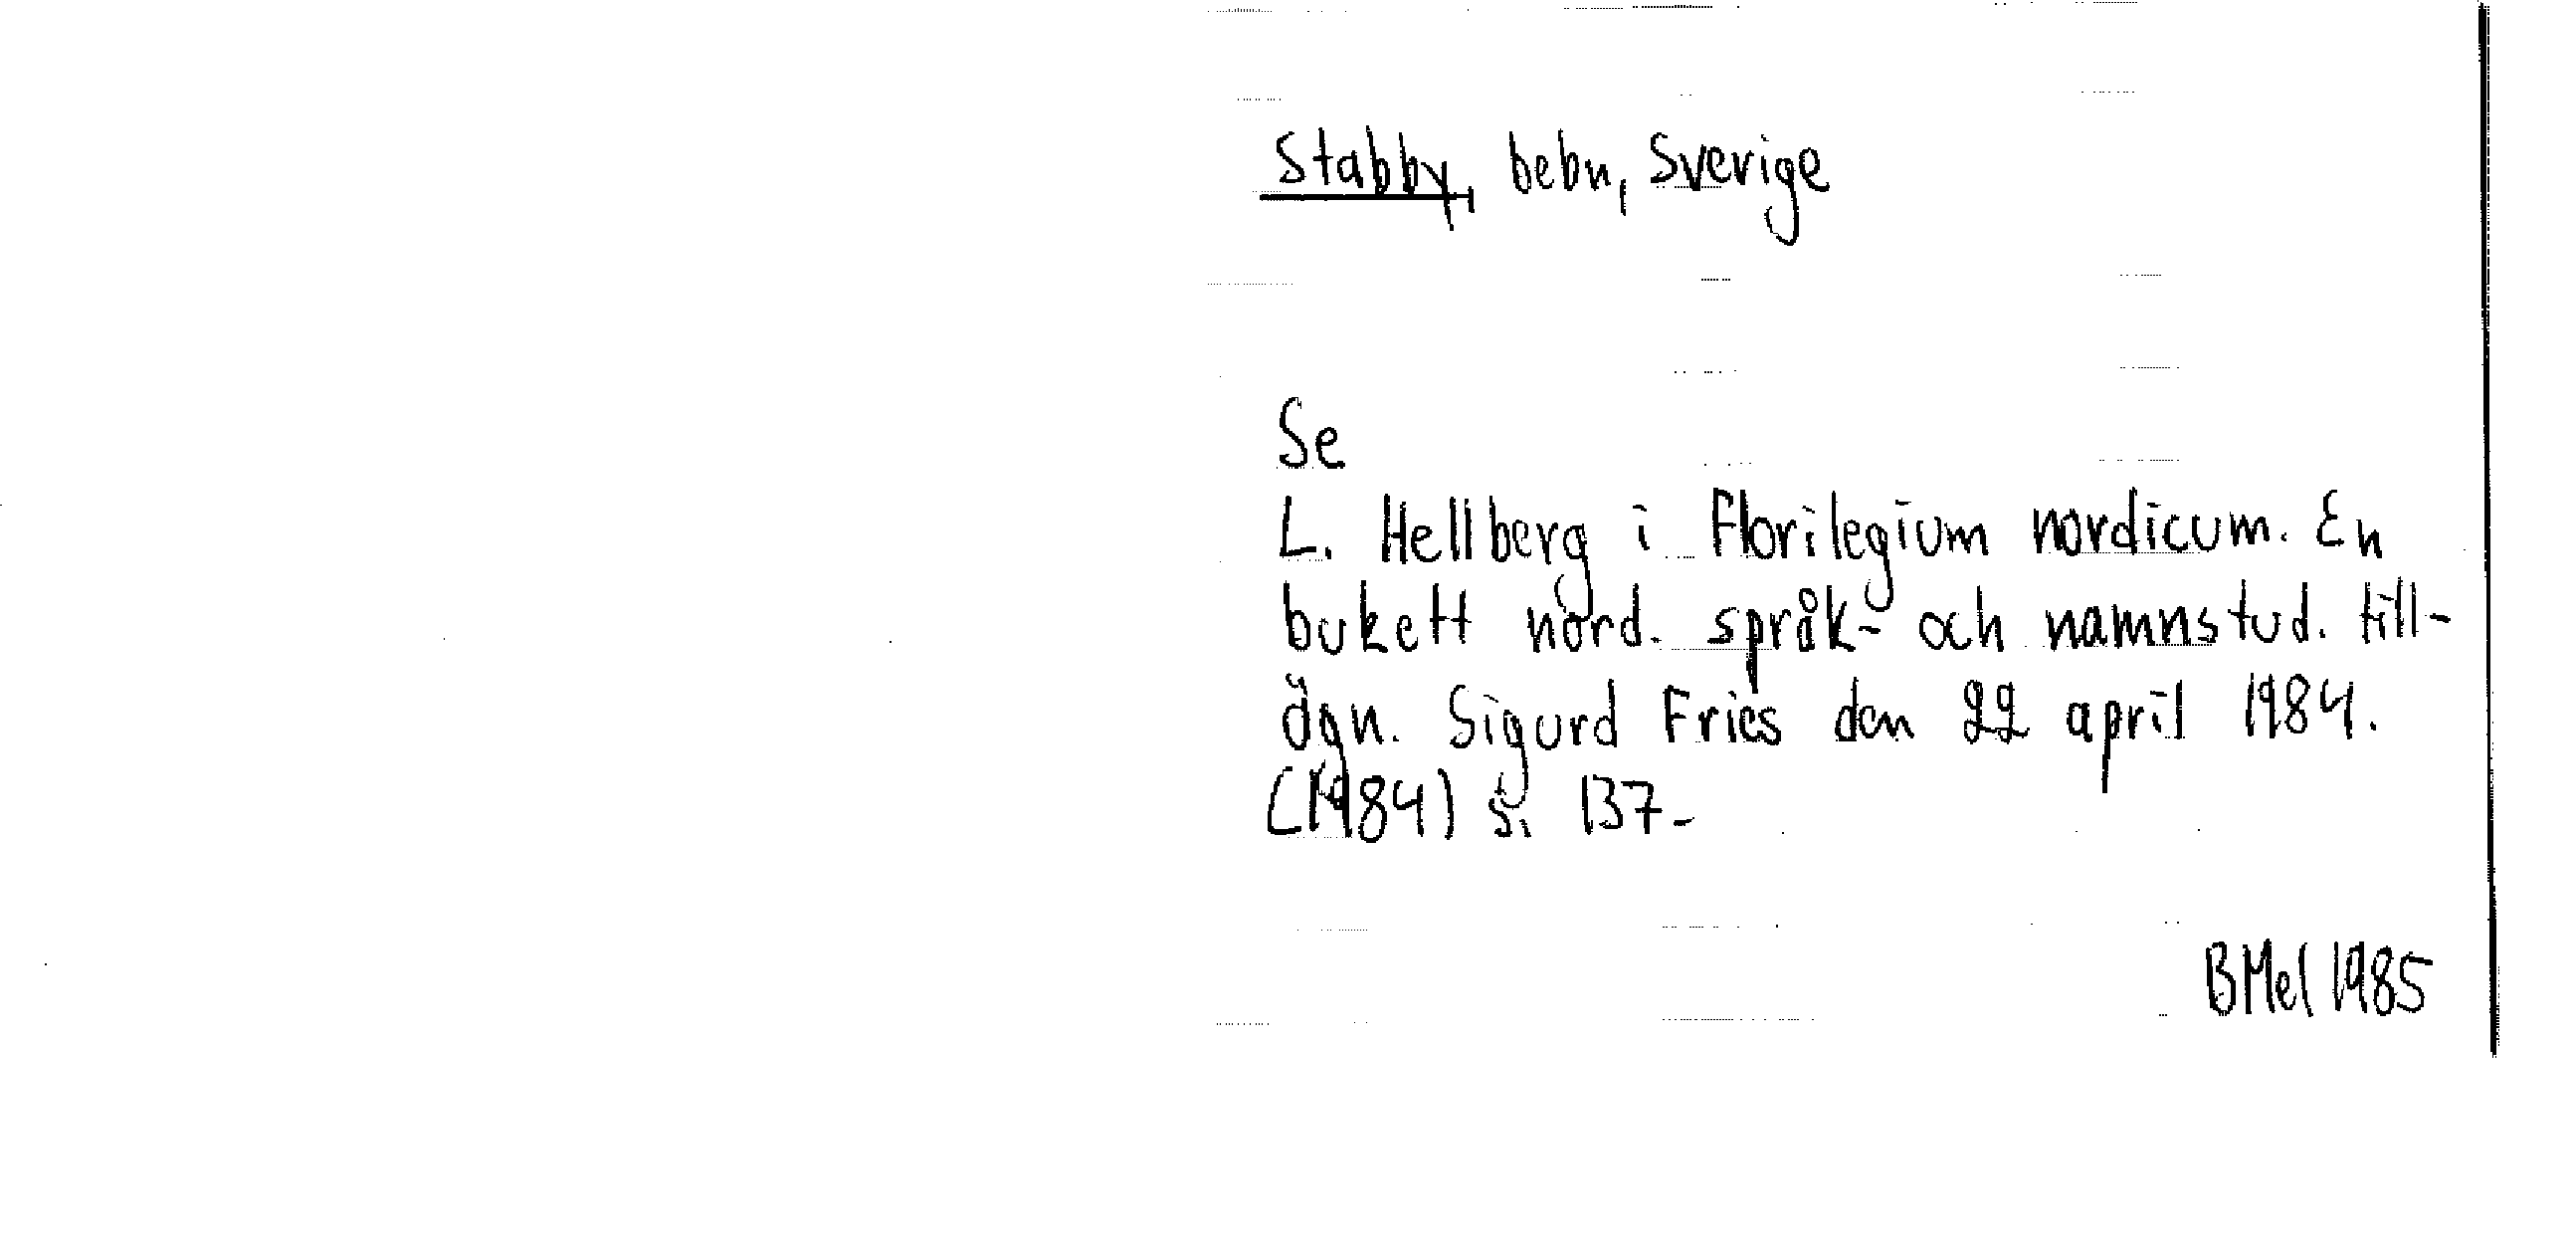 Stabby, bebn, Sverige
Se
L. Hellberg i Florilegium nordicum. En
bukett nord. språk- och namnstud. till-
ägn. Sigurd Fries den 22 april 1984.
(1984) s. 137-
BMel 1985